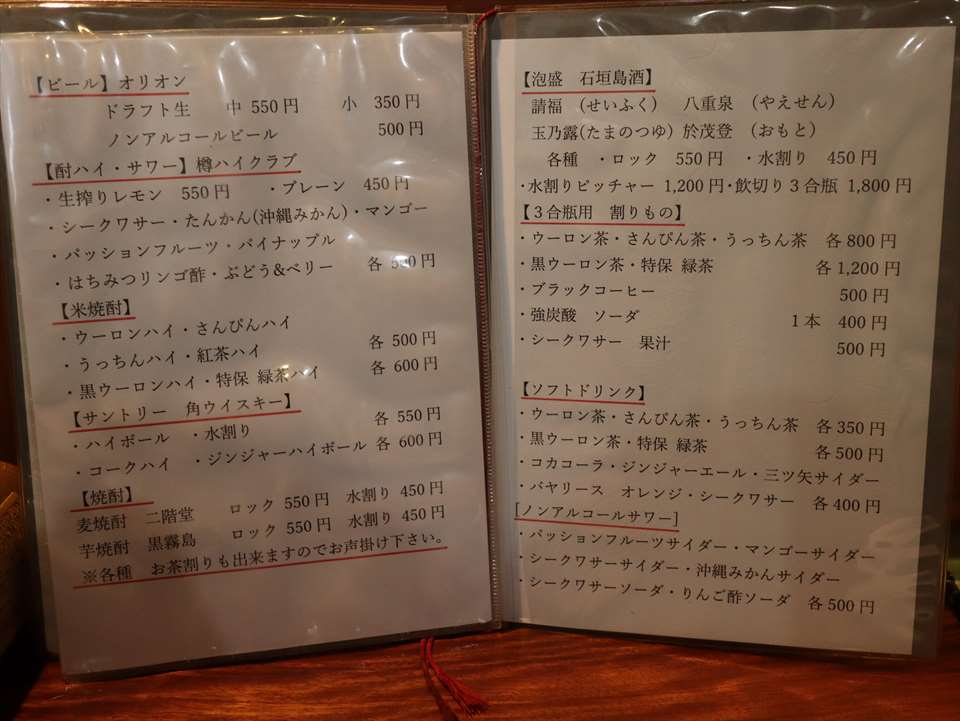 【ビール】オリオン
ドラフト生 中 550円 小 350円
ノンアルコールビール 500円
【酎ハイ・サワー】樽ハイクラブ
・生搾りレモン 550円 ・プレーン 450円
・シークワサー・たんかん(沖縄みかん)・マンゴー
・パッションフルーツ・パイナップル
・はちみつリンゴ酢・ぶどう&ベリー 各 500円
【米焼酎】
・ウーロンハイ・さんぴんハイ
・うっちんハイ・紅茶ハイ 各 500円
・黒ウーロンハイ・特保 緑茶ハイ 各 600円
【サントリー 角ウイスキー】
・ハイボール ・水割り 各 550円
・コークハイ ・ジンジャーハイボール 各 600円
【焼酎】
麦焼酎 二階堂 ロック 550円 水割り 450円
芋焼酎 黒霧島 ロック 550円 水割り 450円
※各種 お茶割りも出来ますのでお声掛け下さい。
【泡盛 石垣島酒】
請福 (せいふく) 八重泉 (やえせん)
玉乃露(たまのつゆ) 於茂登 (おもと)
各種 ・ロック 550円 ・水割り 450円
・水割りピッチャー 1,200円・飲切り3合瓶 1,800円
【3合瓶用 割りもの】
・ウーロン茶・さんぴん茶・うっちん茶 各800円
・黒ウーロン茶・特保 緑茶 各1,200円
・ブラックコーヒー 500円
・強炭酸 ソーダ 1本 400円
・シークワサー 果汁 500円
【ソフトドリンク】
・ウーロン茶・さんぴん茶・うっちん茶 各350円
・黒ウーロン茶・特保 緑茶 各500円
・コカコーラ・ジンジャーエール・三ツ矢サイダー
・バヤリース オレンジ・シークワサー 各400円
[ノンアルコールサワー]
・パッションフルーツサイダー・マンゴーサイダー
・シークワサーサイダー・沖縄みかんサイダー
・シークワサーソーダ・りんご酢ソーダ 各500円